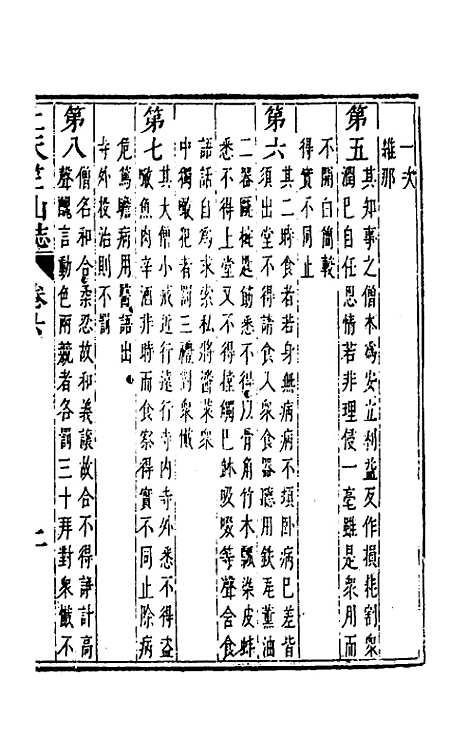 一次
維那
第五其知事之僧本為安立利益反作損耗割眾
潤己自任恩情若非理侵一毫雖是眾用而
不開白簡輒
得實不同止
第六其二時食者若身無病病不頓臥病已差皆
須出堂不得請食入眾食器聽用鉄瓦薰油
二器甌椀匙筯悉不得以骨角竹木瓢染皮蚌
悉不得上堂又不得㨿觸己鉢吸啜等聲含食
語話自為求索私將醬菜眾
中獨噉犯者罰三禮對眾懺
第七其大僧小戒近行遠行寺內寺外悉不得盜
噉魚肉辛酒非時而食察得實不同止除病
危篤瞻病用醫語出
寺外投治則不罰
第八僧名和合柔忍故和義讓故合不得諍計高
聲醜言動色兩競者各罰三十拜對眾懺不
上天竺山志
卷六
二